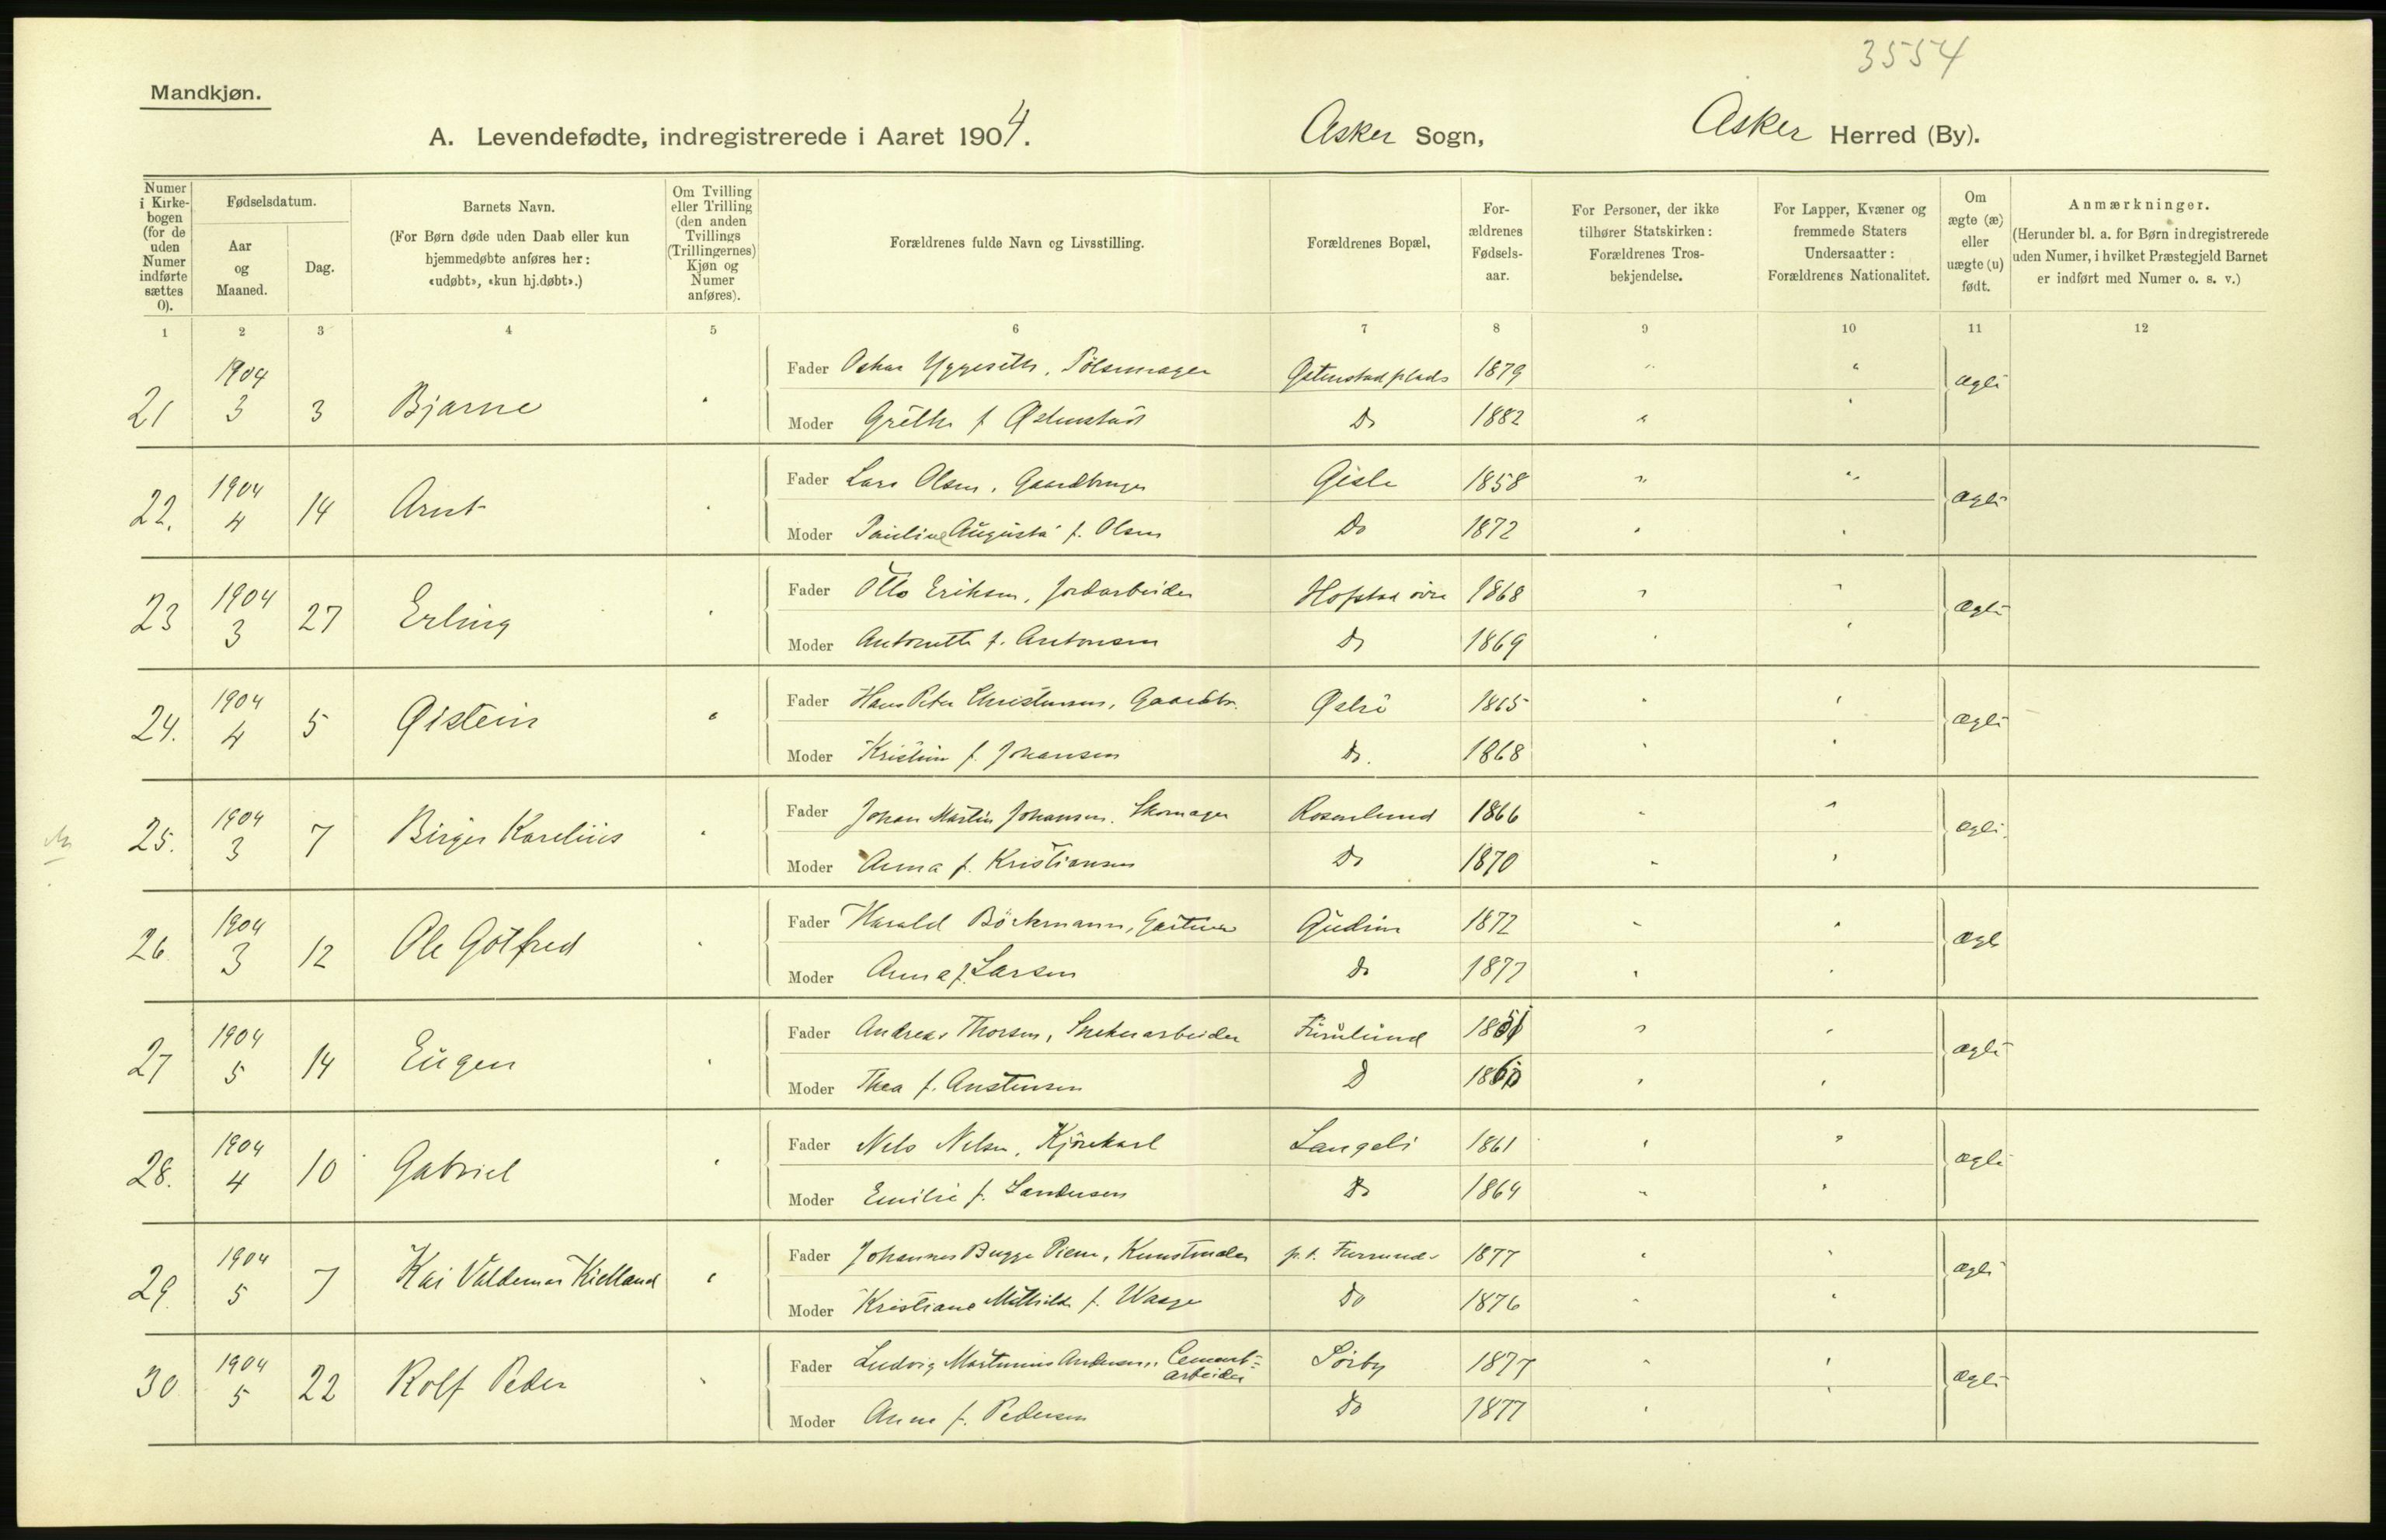 3554
Mandkjøn.
A. Levendefødte, indregistrerede i Aaret 1904. Asker Sogn, Asker Herred (By).
Numer i Kirke-bogen (for de uden Numer indførte sættes 0).
Fødselsdatum.
Aar og Maaned.
Dag.
Barnets Navn.
(For Børn døde uden Daab eller kun
hjemmedøbte anføres her:
«udøbt», «kun hj.døbt».)
Om Tvilling
eller Trilling
(den anden
Tvillings
(Trillingernes)
Kjøn og
Numer
anføres).
Forældrenes fulde Navn og Livsstilling.
Forældrenes Bopæl,
For-
ældrenes
Fødsels-
aar.
For Personer, der ikke
tilhører Statskirken:
Forældrenes Tros-
bekjendelse.
For Lapper, Kvæner og
fremmede Staters
Undersaatter:
Forældrenes Nationalitet.
Om
ægte (æ)
eller
uægte (u)
født.
Anmærkninger.
(Herunder bl. a. for Børn indregistrerede
uden Numer, i hvilket Præstegjeld Barnet
er indført med Numer o. s. v.)
1 2 3 4 5 6 7 8 9 10 11 12
21 1904 3 3 Bjarne Fader Oskar Yggeseth, Pölsemager 1879 ægte
Moder Grethe f. Østenstad Do 1882
22. 1904 4 14 Arnt Fader Lars Olsen, Gaardbruger Gisle 1858 ægte
Moder Pauline Augusta f. Olsen Do 1872
23 1904 3 27 Erling Fader Otto Eriksen, Jordarbeider Hofstad övre 1868 ægte
Moder Antonette f. Antonsen Do 1869
24. 1904 4 5 Øistein Fader Hans Peter Christensen, Gaardbr. 1865 ægte
Moder Kristine f. Johansen Do. 1868
25. 1904 3 7 Birger Karelius Fader Johan Martin Johansen, Skomager Rosenlund 1866 ægte
Moder Anna f. Kristiansen Do 1870
26 1904 3 12 Ole Götfred Fader Harald Böckmann, Gartner Gudim 1872 ægte
Moder Anna f. Larsen Do 1877
27 1904 5 14 Eugen Fader Andreas Thorsen, Snekerarbeider Furulund ægte
Moder Thea f. Anstensen D
28. 1904 4 10 Gabriel Fader Nils Nilsen, Kjörekarl Langeli 1861 ægte
Moder Emilie f. Sandersen Do 1864
29 1904 5 7 Kai Valdemar Kielland Fader Johannes Bugge Piene, Kunstmaler p.t. 1877 ægte
Moder Kristiane Mathilde f. Waage Do 1876
30 1904 5 22 Rolf Peder Fader Ludvig Martinius Andersen, Cement-
arbeider Sörby 1877 ægte
Moder Anne f. Pedersen Do 1877